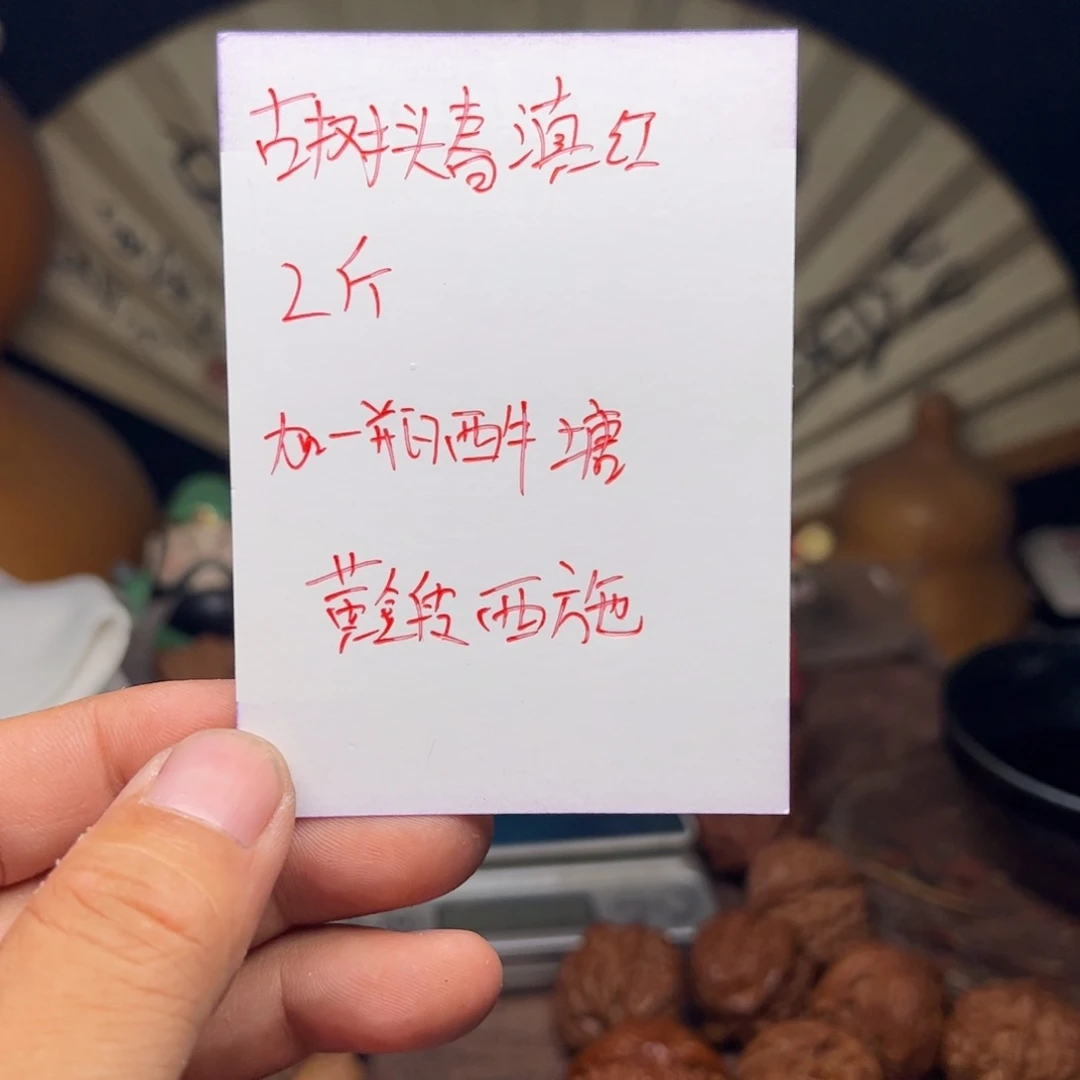 古树头春滇红
2斤
加一瓶日晒牛塘
黄金段西施